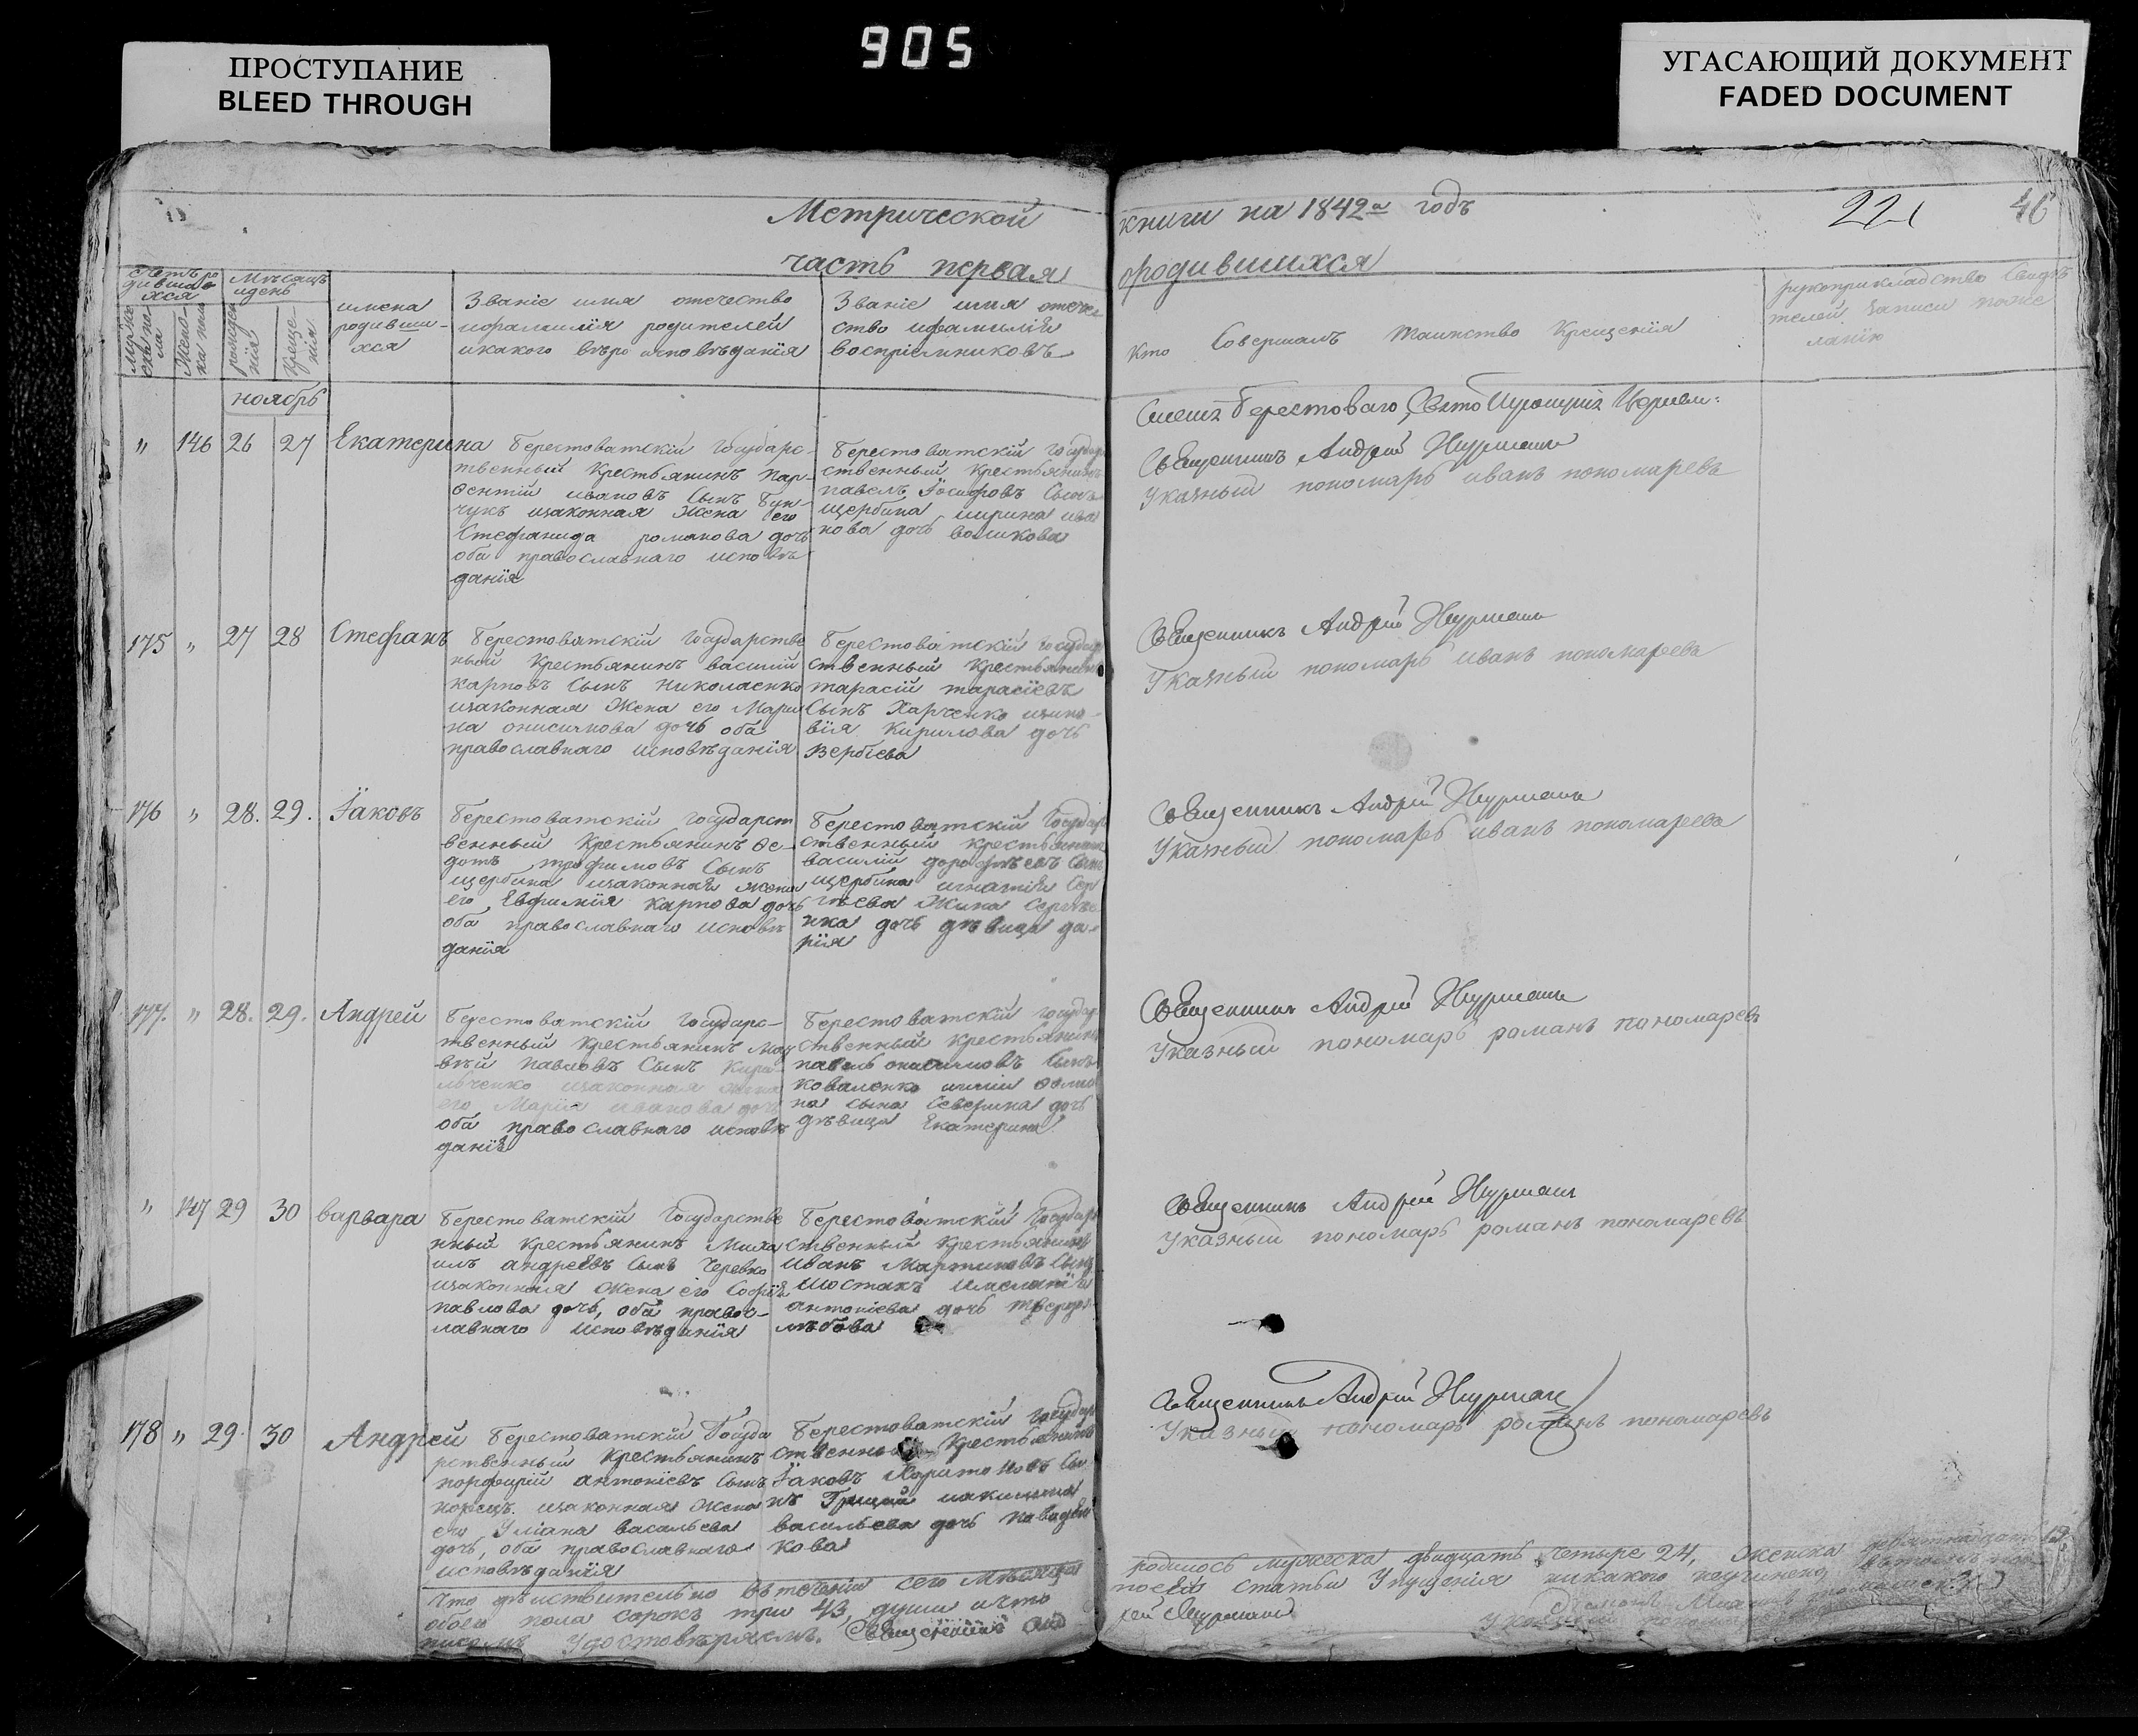 905
ПРОСТУПАНИЕ
BLEED THROUGH
УГАСАЮЩИЙ ДОКУМЕНТ
FADED DOCUMENT
Метрической
книги на 1842й годъ
221
46
часть первая
родившихся
Мѣсяцъ
идень
имена
родивши-
хся
Званіе имя отечество
ифамилія родителей
икакого вѣро исповѣданія
Званіе имя отече
ство ифамилія
воспріемниковъ
Кто Совершалъ таинство Крещенія
рукоприкладство Свидѣ
телей записи поже
ланію
ноябрь
" 146 26 27 Екатерина
Берестоватскій Государс-
твенный Крестьянинъ Пар-
ѳентій ивановъ Сынъ Бун-
чукъ изаконная Жена его
Стефанида романова дочь
оба православнаго исповѣ
данія
Берестоватскій Государ
ственный Крестьянинъ
павелъ Іосифовъ Сынъ
щербина иирина ива
нова дочь воликова
Священникъ Андрей
Указный пономарь иванъ пономаревъ
175 " 27 28 Стефанъ
Берестоватскій Государстве
ный Крестьянинъ василий
карповъ Сынъ николаенко
изаконная Жена его Мари
на онисимова дочь оба
православнаго исповѣданія
Берестоватскій Государ
ственный Крестьянинъ
тарасій тарасіевъ
Сынъ Харченко изино-
вія Кирилова дочь
Вербіева
Священникъ Андрей
Указный пономарь иванъ пономаревъ
176 " 28. 29. Іаковъ
Берестоватскій Государст
венный Крестьянинъ Ѳе-
дотъ трофимовъ Сынъ
щербина изаконная жена
его Евфимія карпова дочь
оба православнаго исповѣ
данія
Берестоватскій Государ
ственный Крестьянинъ
василій дорофѣевъ Сынъ
щербина
дочь дѣвица да-
рія
Священникъ Андрей
Указный пономарь иванъ пономаревъ
177. " 28. 29. Андрей
Берестоватскій Государс-
твенный Крестьянинъ Мат
вѣй павловъ Сынъ Кири-
льченко изаконная жена
его Марія иванова дочь
оба православнаго исповѣ
данія
Берестоватскій Государ
ственный Крестьянинъ
павелъ онисимовъ Сынъ
коваленко
на сына Северина дочь
дѣвица Екатерина
Священникъ Андрей
Указный пономарь романъ пономаревъ
" 147 29 30 варвара
Берестоватскій Государстве
нный Крестьянинъ Миха
илъ андреевъ Сынъ Черевко
изаконная Жена его Софія
павлова дочь, оба правос-
лавнаго исповѣданія
Берестоватскій Государ
ственный Крестьянинъ
иванъ Мартиновъ Сынъ
Шостакъ имеланія
антоніева дочь
Священникъ Андрей
Указный пономарь романъ пономаревъ
178 " 29. 30 Андрей
Берестоватскій Госуда
рственный Крестьянинъ
порфирій антоніевъ Сынъ
корецъ. изаконная Жена
его Уліана васильева
дочь, оба православнаго
исповѣданія
Берестоватскій Государ
ственный Крестьянинъ
Іаковъ Харитоновъ Сы
нъ Грицай иакилина
васильева дочь
кова
Священникъ Андрей
Указный пономарь романъ пономаревъ
Что дѣиствительно втеченіи сего Мѣсяца
родилось мужеска двадцать четыре 24, Женска девятнадцать 19
обоего пола сорокъ три 43, души ичто
посей статьи Упущенія никакого неучинено
Удостовѣряемъ. Священникъ Анд
рей